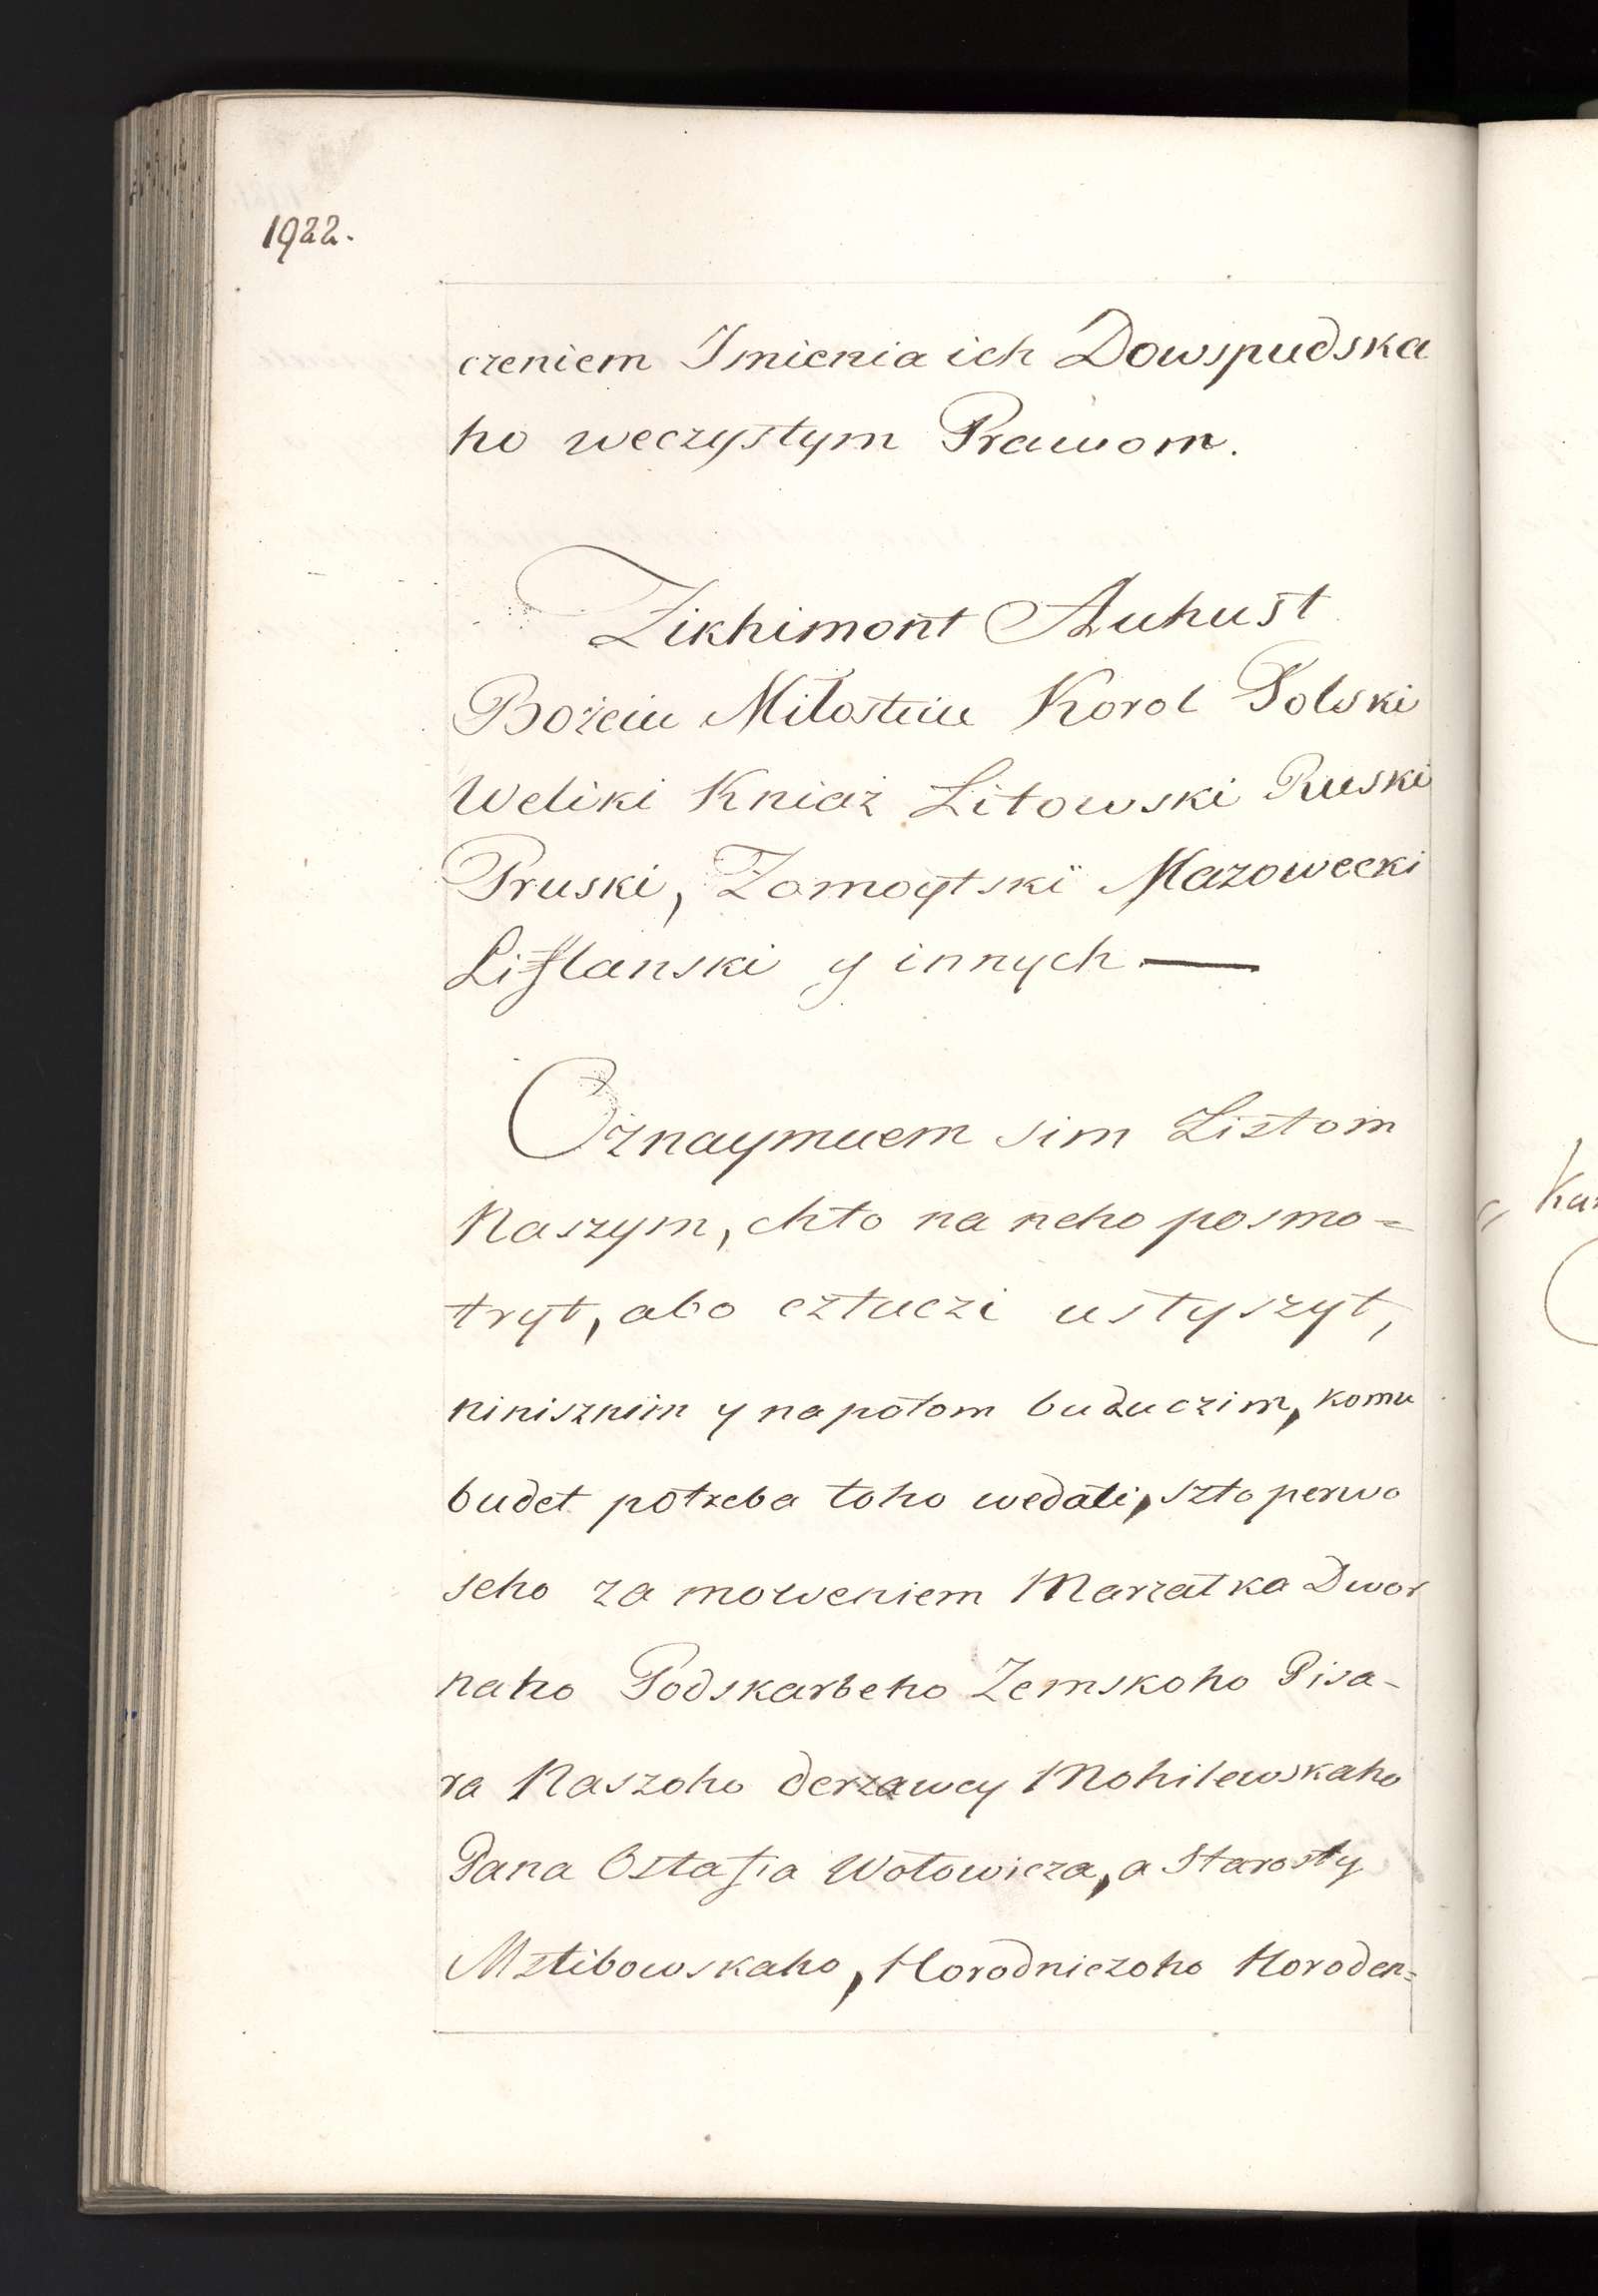 1922.
czeniem Imienia ich Dowspudska
ho weczystym Prawom.
Zikhimont Auhust
Bożeiu Miłostiiu Korol Polski
Weliki Kniaż Litowski Ruski
Pruski, Żomoytski Mazowecki
Liflanski y innych —
Oznaymuem sim Listom
Naszym, chto na neho posmo=
tryt, abo cztuczi usłyszyt,
niniszniim y napotom buduczim, komu
budet potreba toho wedati, szto perwo
seho za moweniem Marzałka Dwor
naho Podskarbeho Zemskoho Pisa-
ra Naszoho derzawcy Mohilewskaho
Pana Ostafia Wołowicza, a Starosty
Mstibowskaho, Horodniczoho Horoden=
Kar